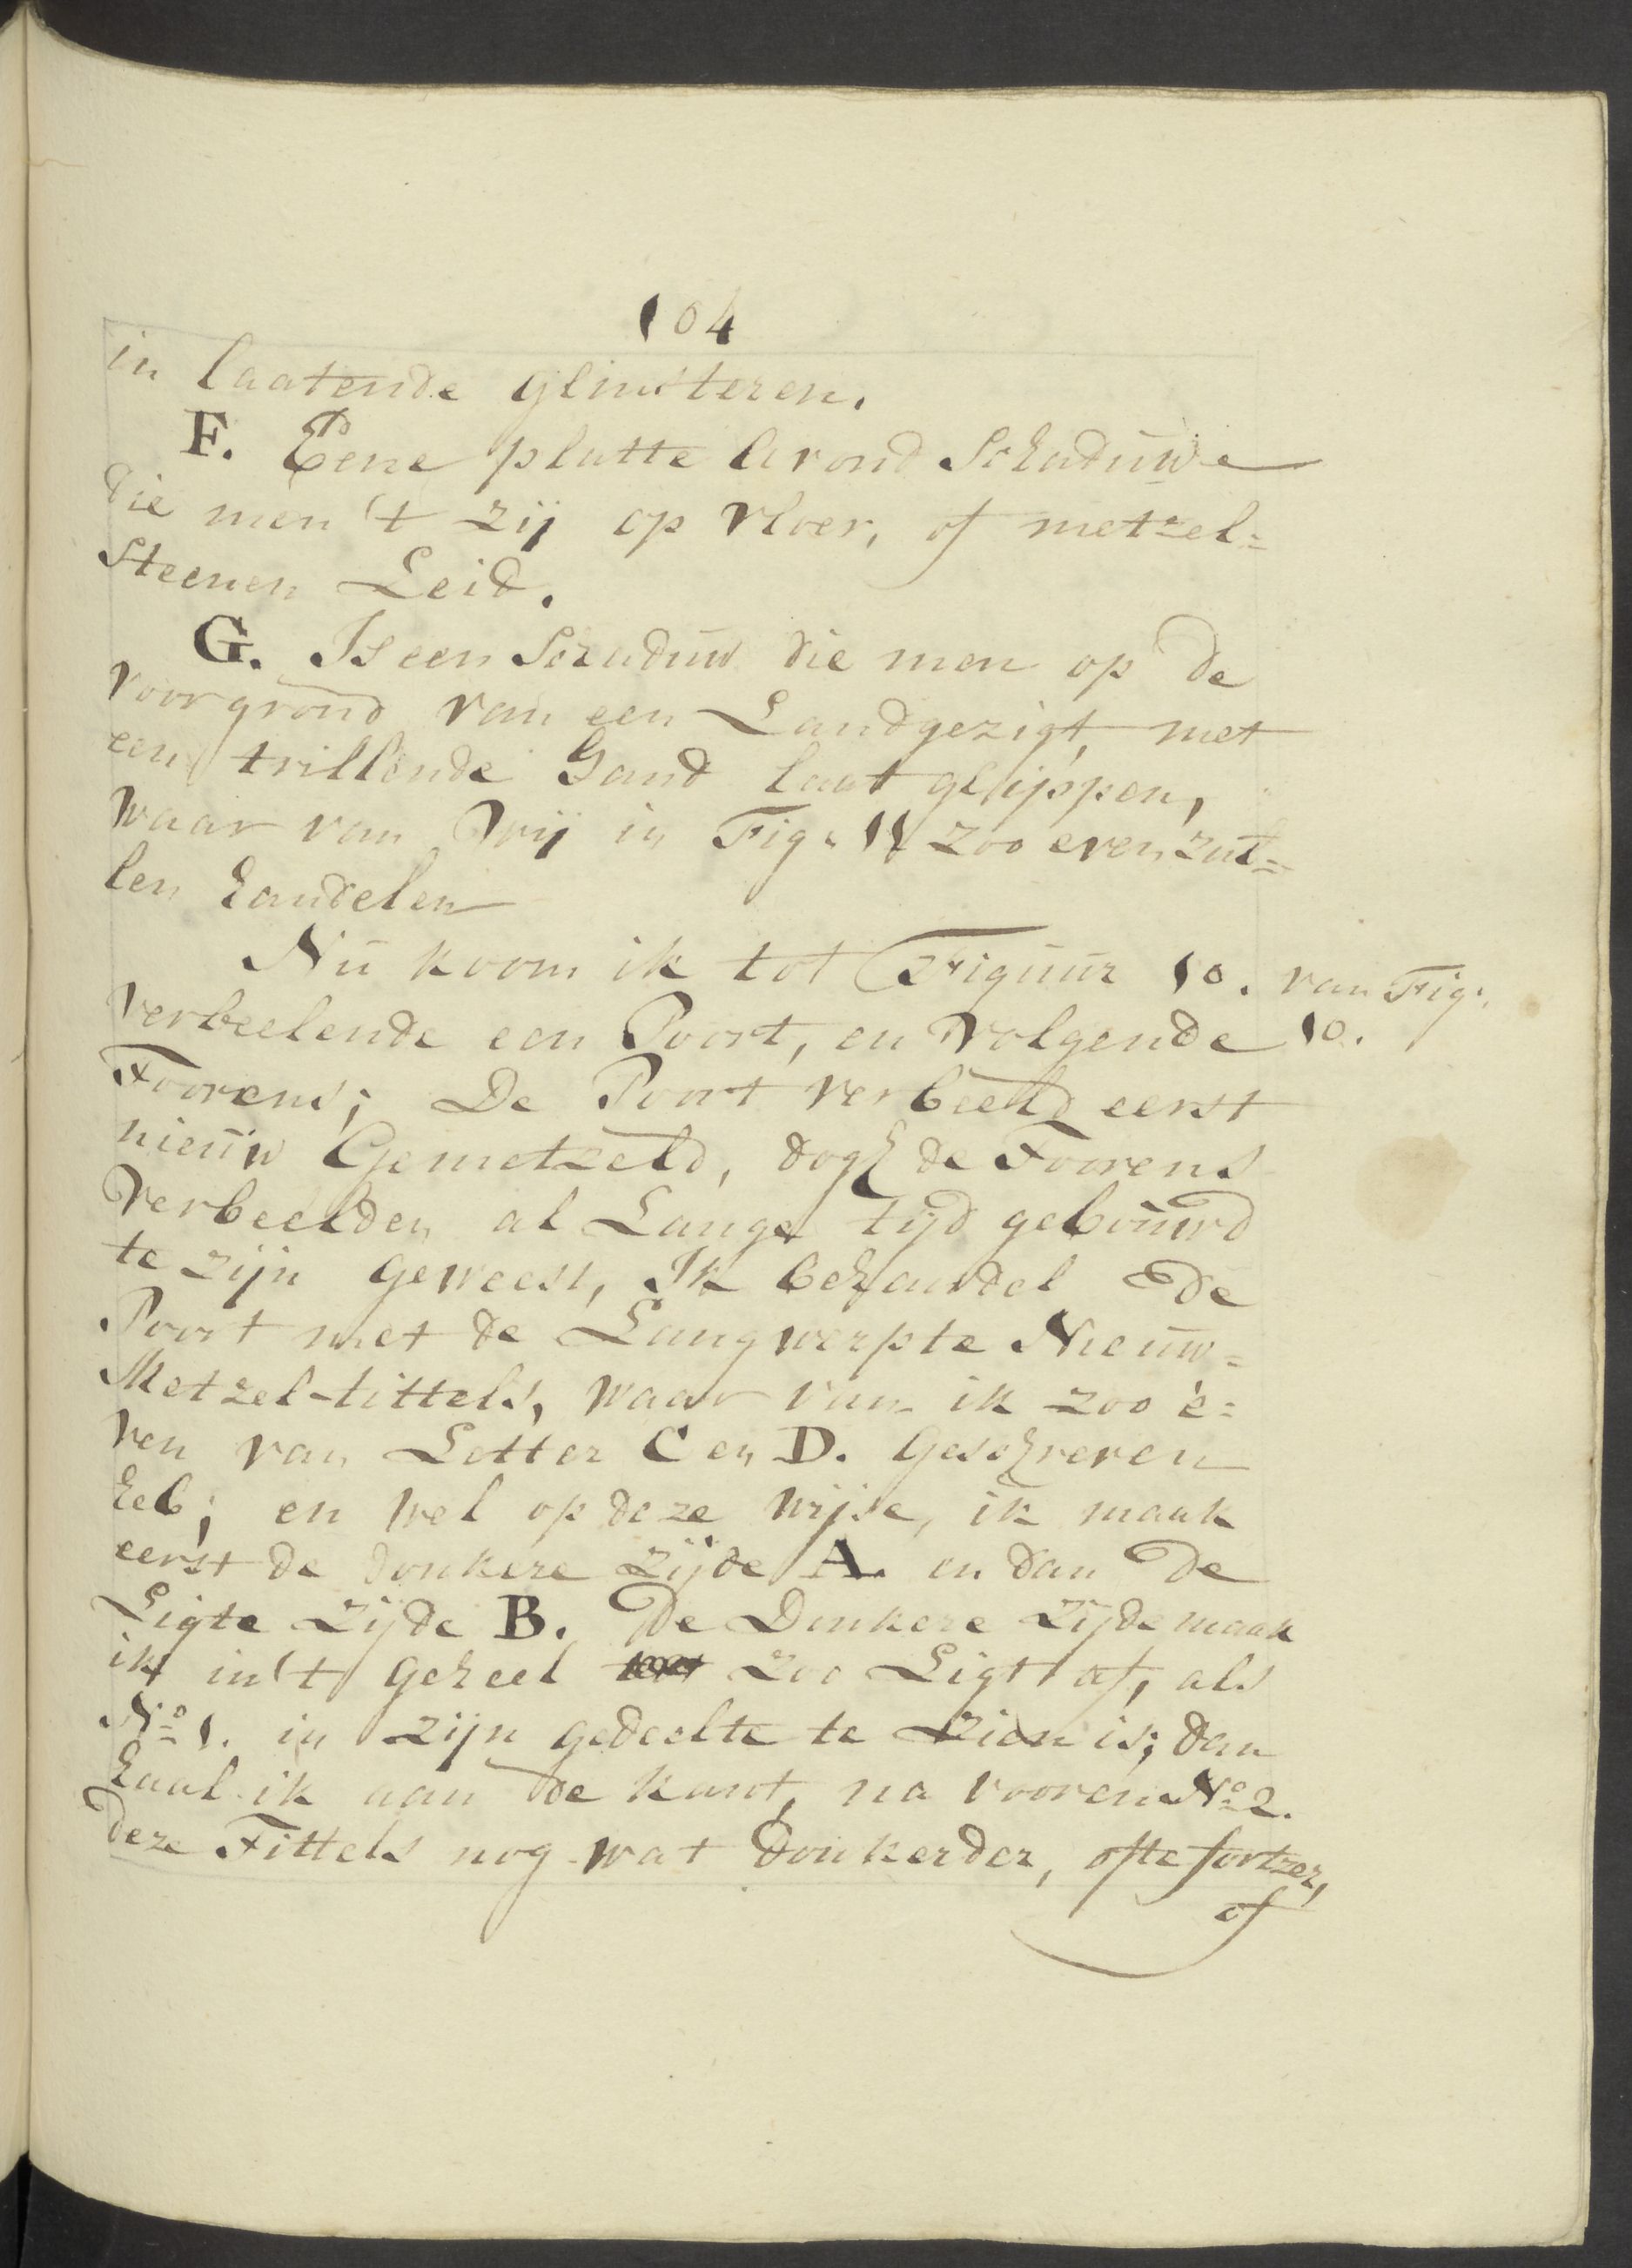 104
in laatende glinsteren.
F. Eene platte Avond Schaduwe
die men 't zij op vloer, of metzel=
steenen Leid.
G. Is een Schaduw die men op de
voorgrond van een Landgezigt, met
een trillende Hand laat glippen,
waar van Wij in Fig. 11 zoo even zul=
len handelen
Nu koom ik tot Figuur 10. van Fig.
verbeelende een Poort, en volgende 10.
Toorens; De Poort verbeeld eerst
nieuw Gemetzeld, dogh de Toorens
verbeelden al Lange tijd gebouwd
te zijn geweest, Ik behandel de
Poort met de Langwerpte Nieuw=
Metzel-tittels, waar van ik zoo e=
ven van Letter C en D. geschreven
heb; en wel op deze wijse, ik maak
eerst de donkere zijde A. en dan de
Ligte zijde B. De Donkere zijde maak
ik in 't geheel zoo Ligt af, als
No. 1. in zijn gedeelte te zien is; dan
haal ik aan de kant, na vooren No. 2.
deze Tittels nog wat donkerder, ofte fortzer,
of